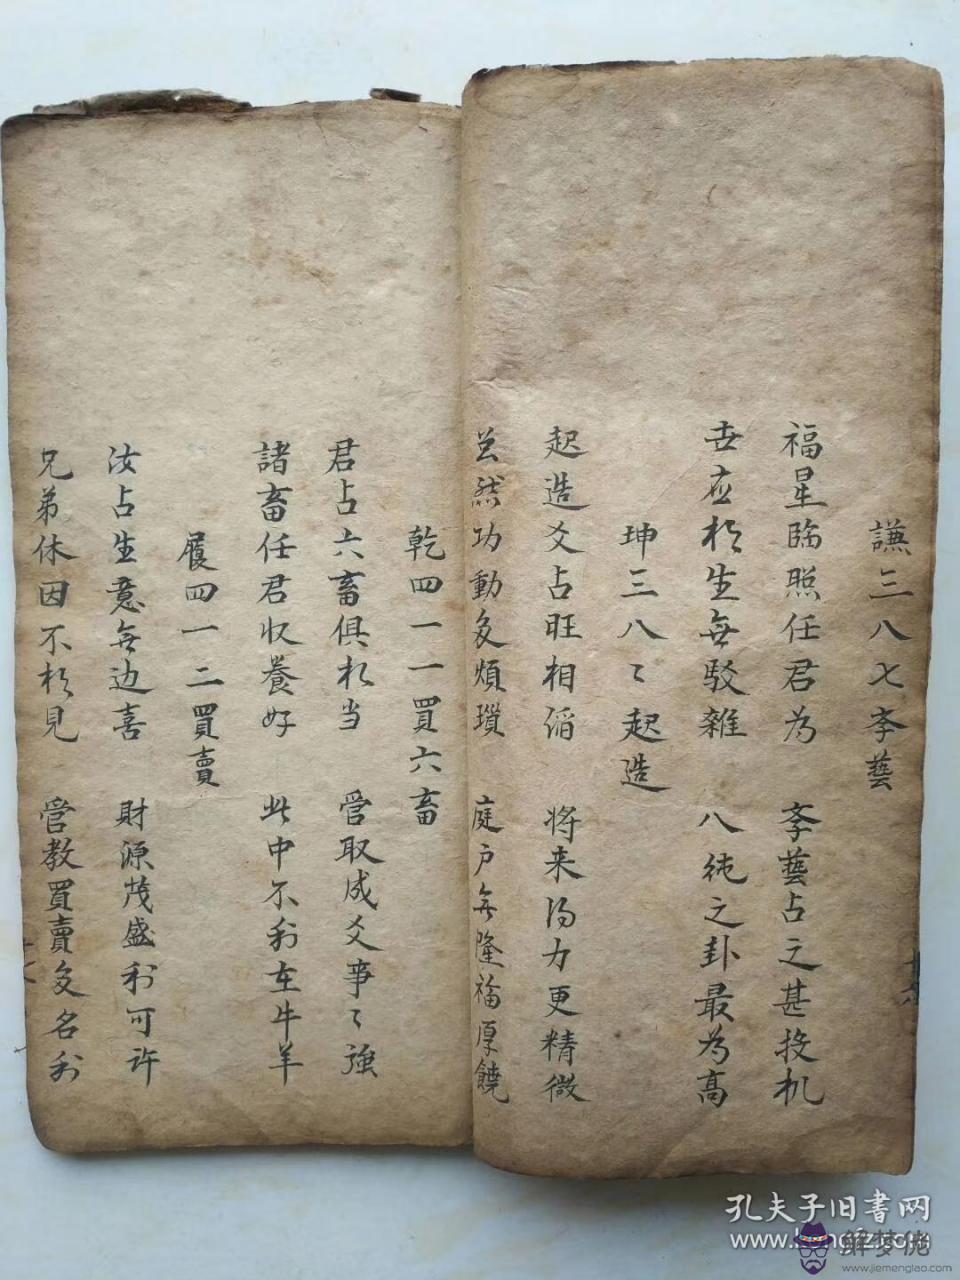 謙三八七孝藝
福星臨照任君为 孝藝占之甚投机
世应相生無駁雜 八純之卦最为高
坤三八〻起造
起造爻占旺相俻 将来得力更精微
总然功動多煩瑣 庭户興隆福厚饒
乾四一一買六畜
君占六畜俱相当 管取成爻事〻強
諸畜任君収養好 此中不利在牛羊
履四一二買賣
汝占生意無边喜 財源茂盛利可許
兄弟休因不相見 管教買賣多名利
孔夫子旧書网
www.kongfz.com
解梦佬
www.jiemenglao.com